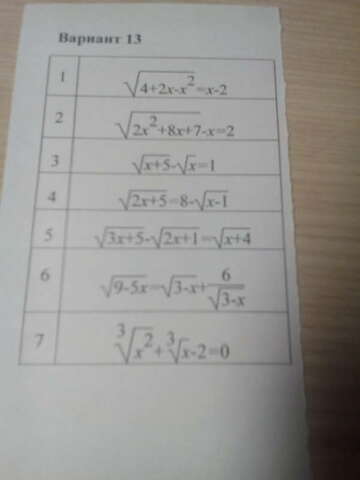 Вариант 13
1 √(4+2x-x²)=x-2
2 √(2x²+8x+7)-x=2
3 √(x+5)-√x=1
4 √(2x+5)=8-√(x-1)
5 √(3x+5)-√(2x+1)=√(x+4)
6 √(9-5x)=√(3-x)+6/√(3-x)
7 ∛(x²)+∛x-2=0